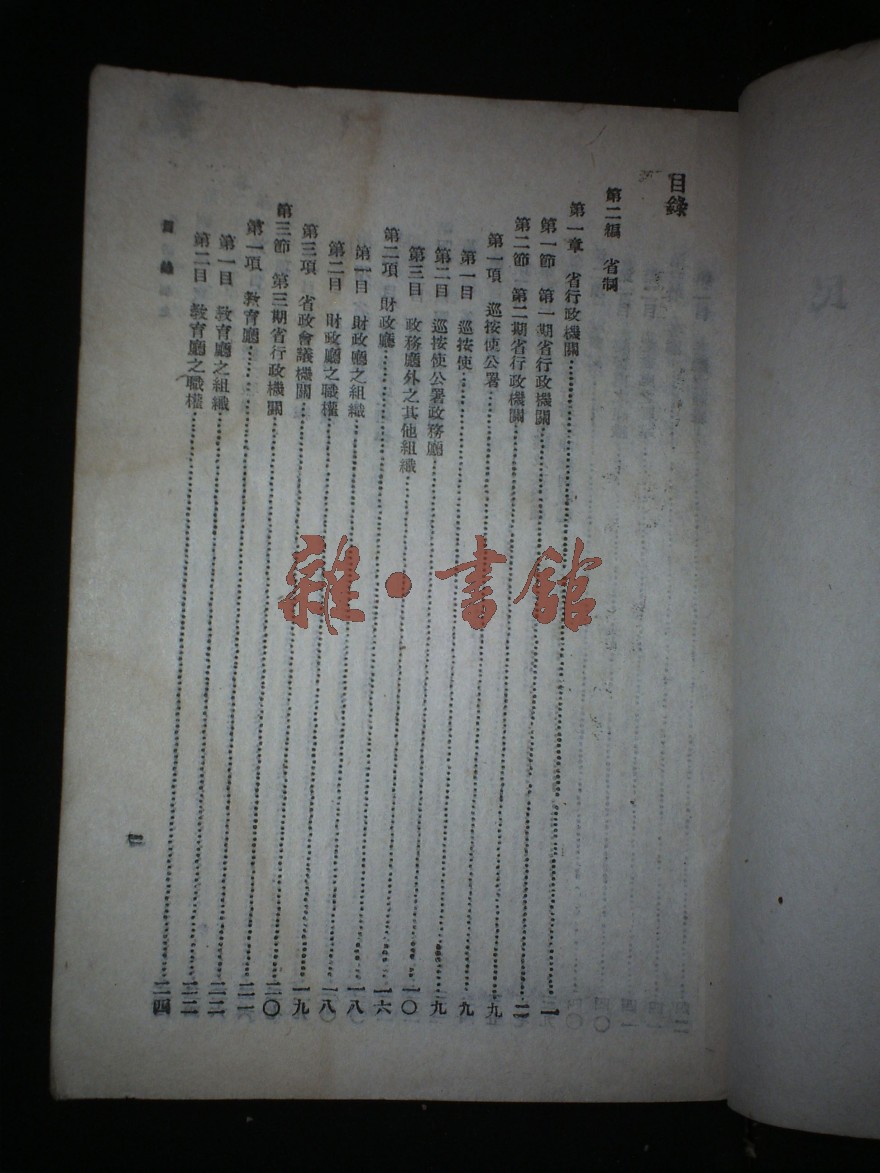 目錄
第二編 省制
第一章 省行政機關……一
第一節 第一期省行政機關……二
第二節 第二期省行政機關……九
第一項 巡按使公署……九
第一目 巡按使……九
第二目 巡按使公署政務廳……一〇
第三目 政務廳外之其他組織……一六
第二項 財政廳……一八
第一目 財政廳之組織……一八
第二目 財政廳之職權……一九
第三項 省政會議機關……二〇
第三節 第三期省行政機關……二一
第一項 教育廳……二二
第一目 教育廳之組織……二二
第二目 教育廳之職權……二四
目錄
雜·書館